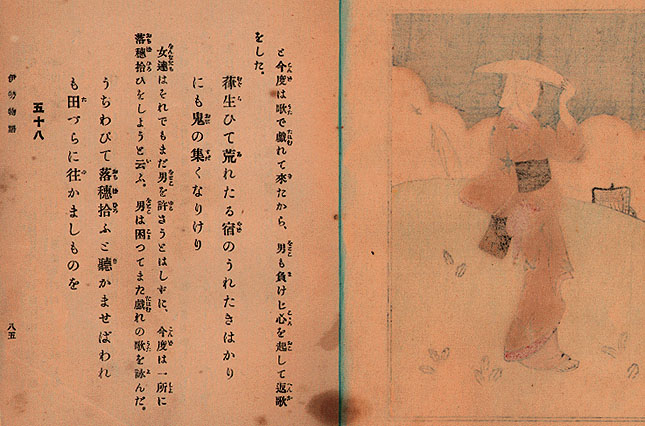 と今度は歌で戯れて來たから、男も負けじ心を起して返歌
をした。
葎生ひて荒れたる宿のうれたきはかり
にも鬼の集くなりけり
女達はそれでもまだ男を許さうとはしずに、今度は一所に
落穗拾ひをしようと云ふ。男は困つてまた戯れの歌を詠んだ。
うちわびて落穗拾ふと聽かませばわれ
も田づらに往かましものを
五十八
伊勢物語
八五